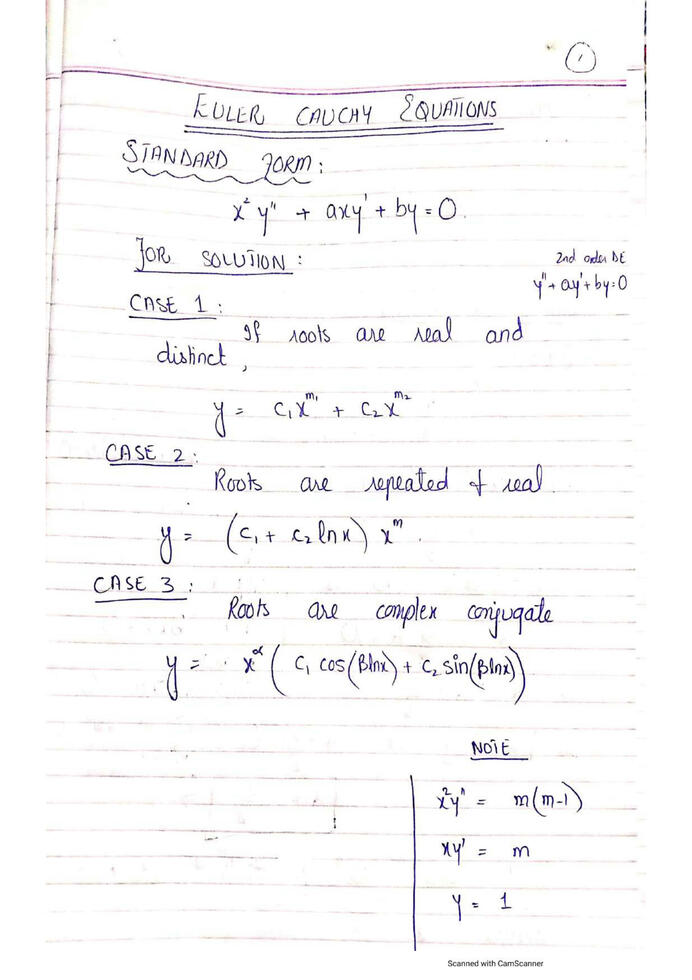 1
EULER CAUCHY EQUATIONS
STANDARD FORM:
x² y" + axy' + by = 0.
FOR SOLUTION:
2nd order DE
y" + ay' + by = 0
CASE 1:
If roots are real and
distinct,
y = c₁x^m₁ + c₂x^m₂
CASE 2:
Roots are repeated & real.
y = (c₁ + c₂lnx) x^m.
CASE 3:
Roots are complex conjugate
y = x^α (c₁ cos(βlnx) + c₂ sin(βlnx))
NOTE
x²y" = m(m-1)
xy' = m
y = 1
Scanned with CamScanner